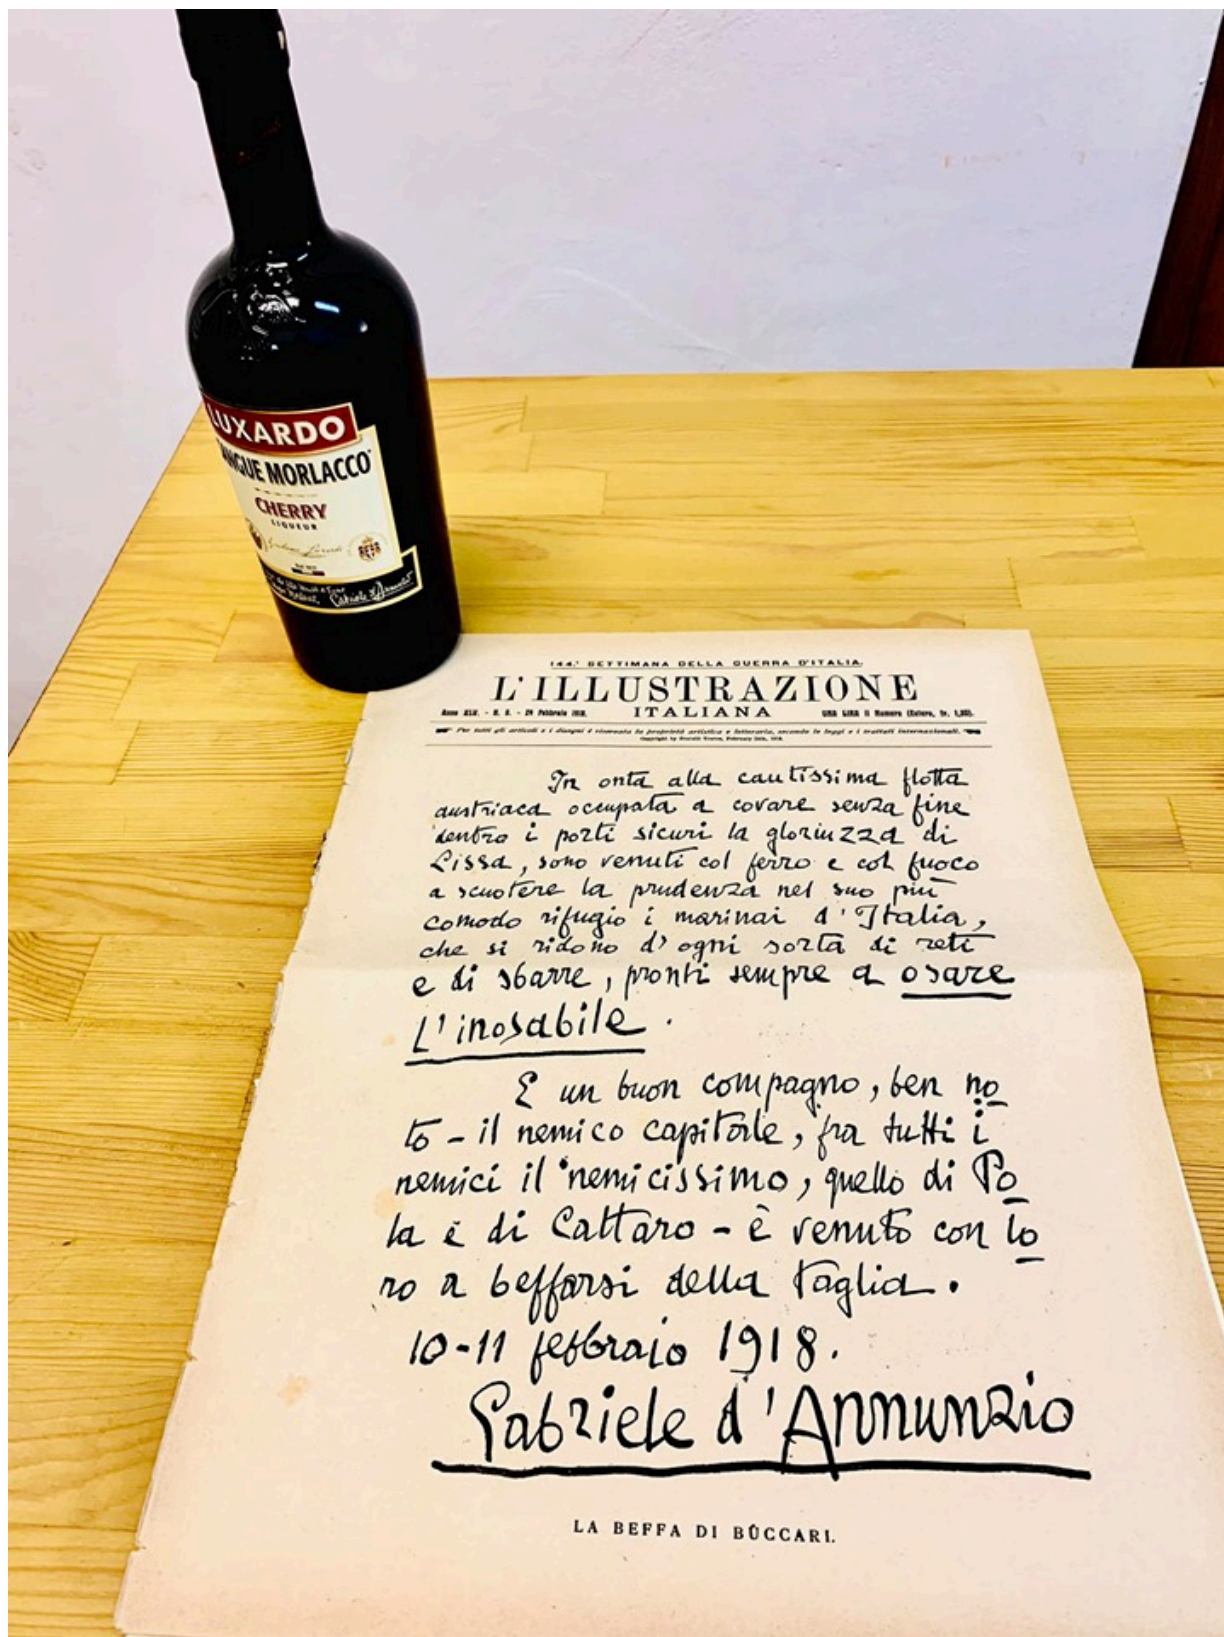 LUXARDO
MORLACCO
CHERRY
LIQUEUR
144.ª SETTIMANA DELLA GUERRA D'ITALIA.
L'ILLUSTRAZIONE
Anno XLV. - N. 8. - 24 Febbraio 1918.
ITALIANA
UNA LIRA il Numero (Estero, fr. 1,30).
Per tutti gli articoli e i disegni è riservata la proprietà artistica e letteraria, secondo le leggi e i trattati internazionali.
Copyright by Fratelli Treves, February 24th, 1918.
In onta alla cautissima flotta
austriaca occupata a covare senza fine
dentro i porti sicuri la gloriuzza di
Lissa, sono venuti col ferro e col fuoco
a scuotere la prudenza nel suo più
comodo rifugio i marinai d'Italia,
che si ridono d'ogni sorta di reti
e di sbarre, pronti sempre a osare
l'inosabile.
E un buon compagno, ben no
to - il nemico capitale, fra tutti i
nemici il nemicissimo, quello di Po
la e di Cattaro - è venuto con lo
ro a beffarsi della taglia.
10-11 febbraio 1918.
Gabriele d'Annunzio
LA BEFFA DI BÛCCARI.